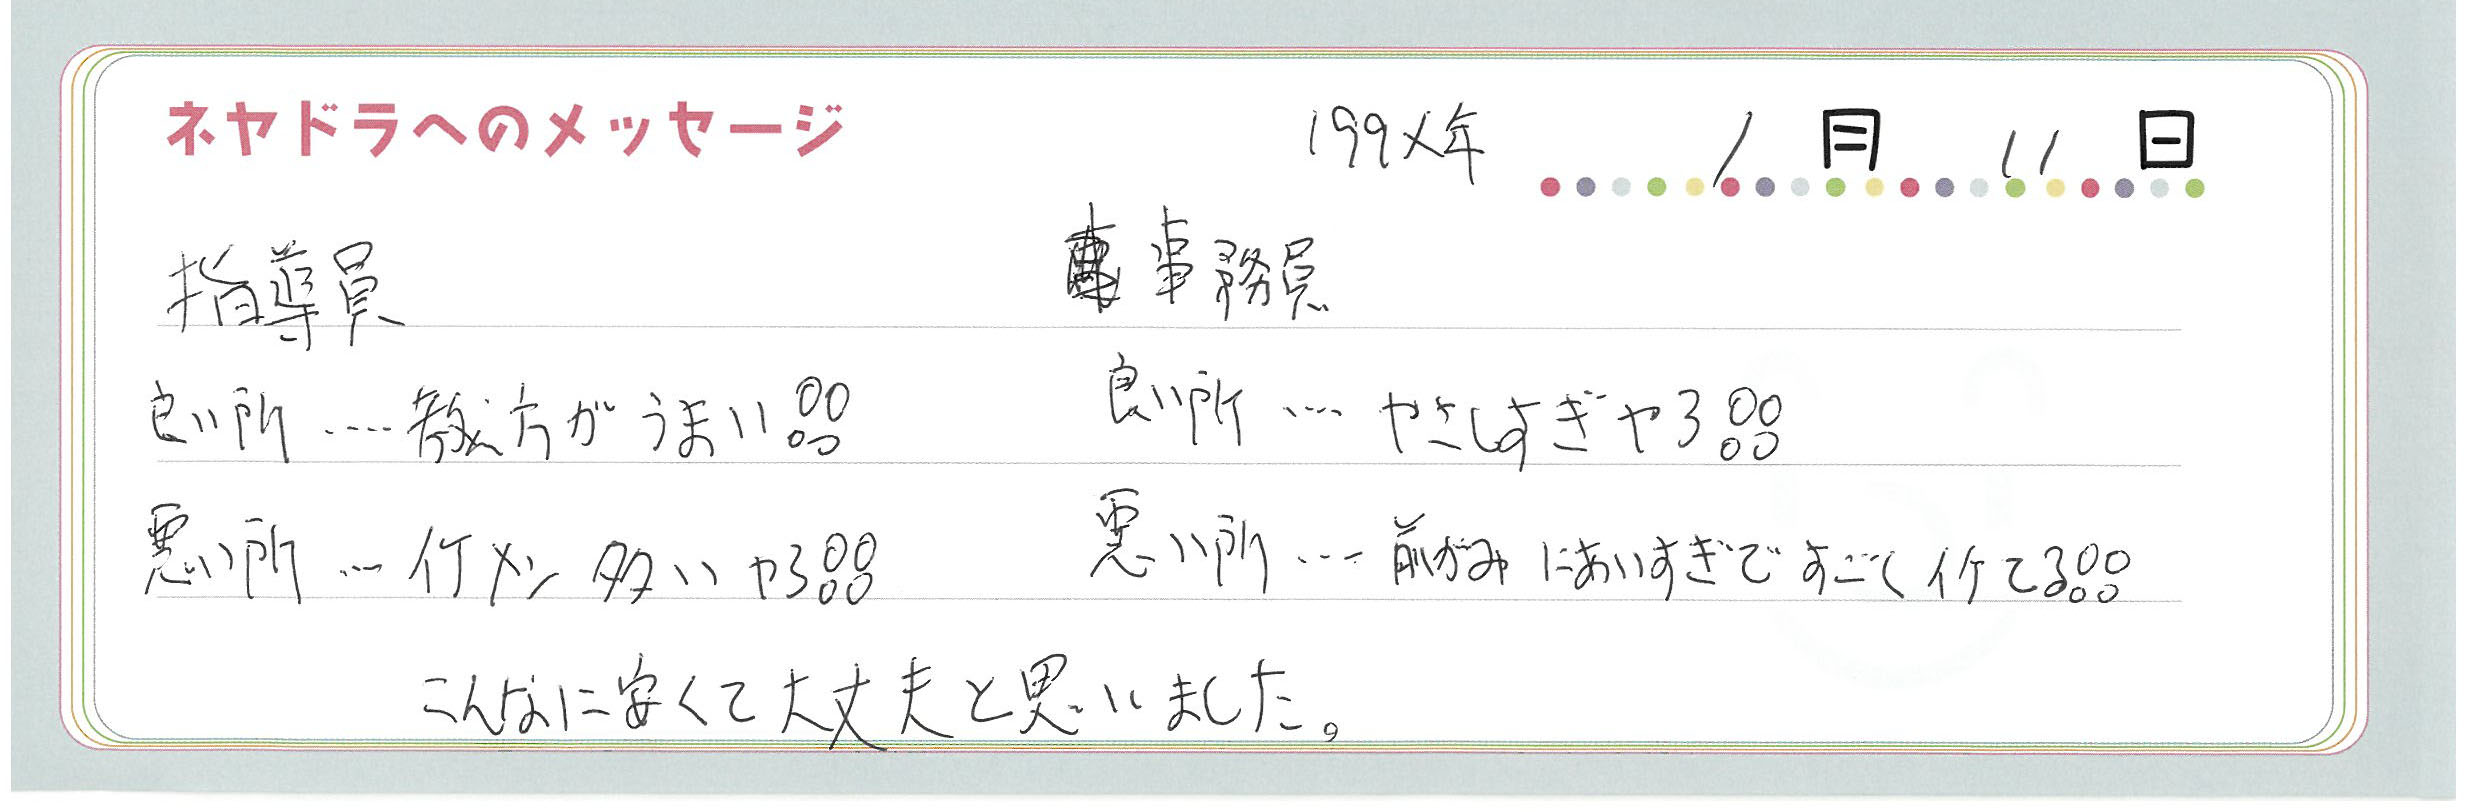 ネヤドラへのメッセージ
199X年 1月 11日
指導員 事務員
良い所....教え方がうまい!!
良い所....やさしすぎやろ!!
悪い所...イケメン多いやろ!!
悪い所...前がみにあいすぎですごくイケてる!!
こんなに安くて大丈夫と思いました。